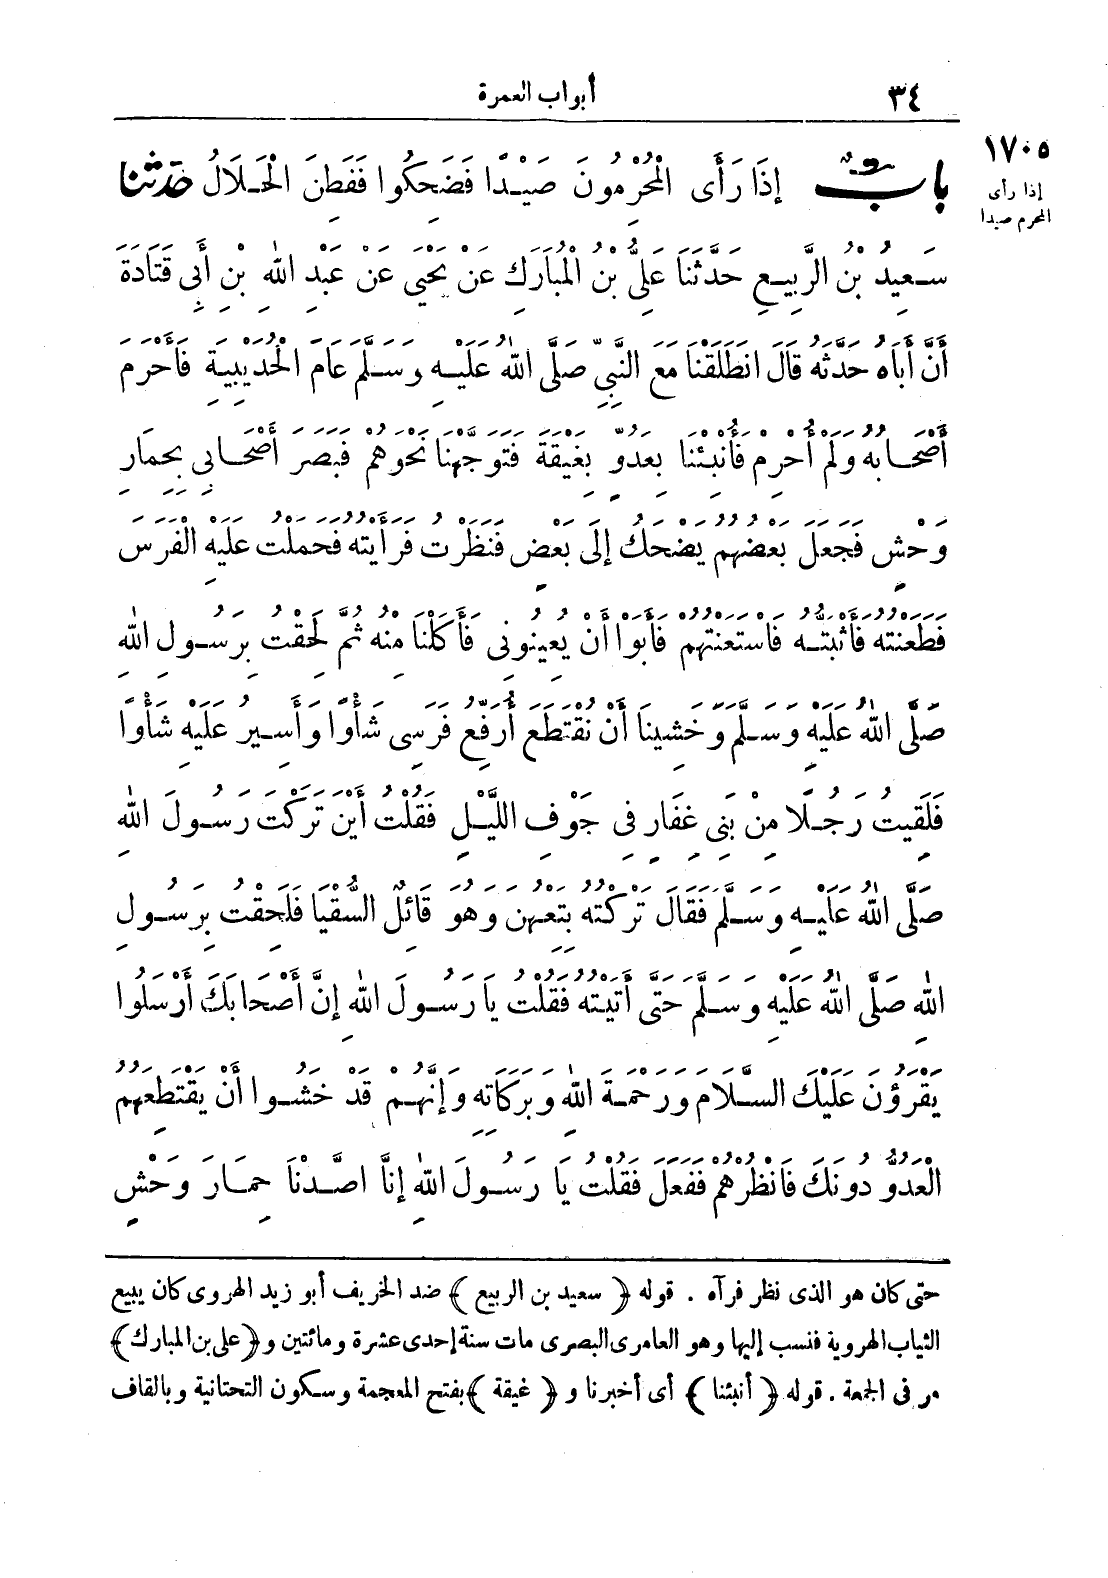 ٣٤
أبواب العمرة
١٧٠٥
إذا رأى
المحرم صيدا
بابٌ إِذَا رَأَى الْمُحْرِمُونَ صَيْدًا فَضَحِكُوا فَفَطِنَ الْحَلَالُ حَدَّثَنَا
سَعِيدُ بْنُ الرَّبِيعِ حَدَّثَنَا عَلِيُّ بْنُ الْمُبَارَكِ عَنْ يَحْيَى عَنْ عَبْدِ اللهِ بْنِ أَبِي قَتَادَةَ
أَنَّ أَبَاهُ حَدَّثَهُ قَالَ انْطَلَقْنَا مَعَ النَّبِيِّ صَلَّى اللهُ عَلَيْهِ وَسَلَّمَ عَامَ الْحُدَيْبِيَةِ فَأَحْرَمَ
أَصْحَابُهُ وَلَمْ أُحْرِمْ فَأُنْبِئْنَا بِعَدُوٍّ بِغَيْقَةَ فَتَوَجَّهْنَا نَحْوَهُمْ فَبَصُرَ أَصْحَابِي بِحِمَارِ
وَحْشٍ فَجَعَلَ بَعْضُهُمْ يَضْحَكُ إِلَى بَعْضٍ فَنَظَرْتُ فَرَأَيْتُهُ فَحَمَلْتُ عَلَيْهِ الْفَرَسَ
فَطَعَنْتُهُ فَأَثْبَتُّهُ فَاسْتَعَنْتُهُمْ فَأَبَوْا أَنْ يُعِينُونِي فَأَكَلْنَا مِنْهُ ثُمَّ لَحِقْتُ بِرَسُولِ اللهِ
صَلَّى اللهُ عَلَيْهِ وَسَلَّمَ وَخَشِينَا أَنْ نُقْتَطَعَ أُرَفِّعُ فَرَسِي شَأْوًا وَأَسِيرُ عَلَيْهِ شَأْوًا
فَلَقِيتُ رَجُلًا مِنْ بَنِي غِفَارٍ فِي جَوْفِ اللَّيْلِ فَقُلْتُ أَيْنَ تَرَكْتَ رَسُولَ اللهِ
صَلَّى اللهُ عَلَيْهِ وَسَلَّمَ فَقَالَ تَرَكْتُهُ بِتَعْهِنَ وَهُوَ قَائِلٌ السُّقْيَا فَلَحِقْتُ بِرَسُولِ
اللهِ صَلَّى اللهُ عَلَيْهِ وَسَلَّمَ حَتَّى أَتَيْتُهُ فَقُلْتُ يَا رَسُولَ اللهِ إِنَّ أَصْحَابَكَ أَرْسَلُوا
يَقْرَؤُنَ عَلَيْكَ السَّلَامَ وَرَحْمَةَ اللهِ وَبَرَكَاتِهِ وَإِنَّهُمْ قَدْ خَشُوا أَنْ يَقْتَطِعَهُمُ
الْعَدُوُّ دُونَكَ فَانْظُرْهُمْ فَفَعَلَ فَقُلْتُ يَا رَسُولَ اللهِ إِنَّا اصَّدْنَا حِمَارَ وَحْشٍ
حتى كان هو الذى نظر فرآه . قوله ﴿ سعيد بن الربيع ﴾ ضد الخريف أبو زيد الهروى كان يبيع
الثياب الهروية فنسب إليها وهو العامرى البصرى مات سنة إحدى عشرة ومائتين و﴿على بن المبارك﴾
مر فى الجمعة . قوله ﴿ أنبئنا ﴾ أى أخبرنا و ﴿ غيقة ﴾ بفتح المعجمة وسكون التحتانية وبالقاف